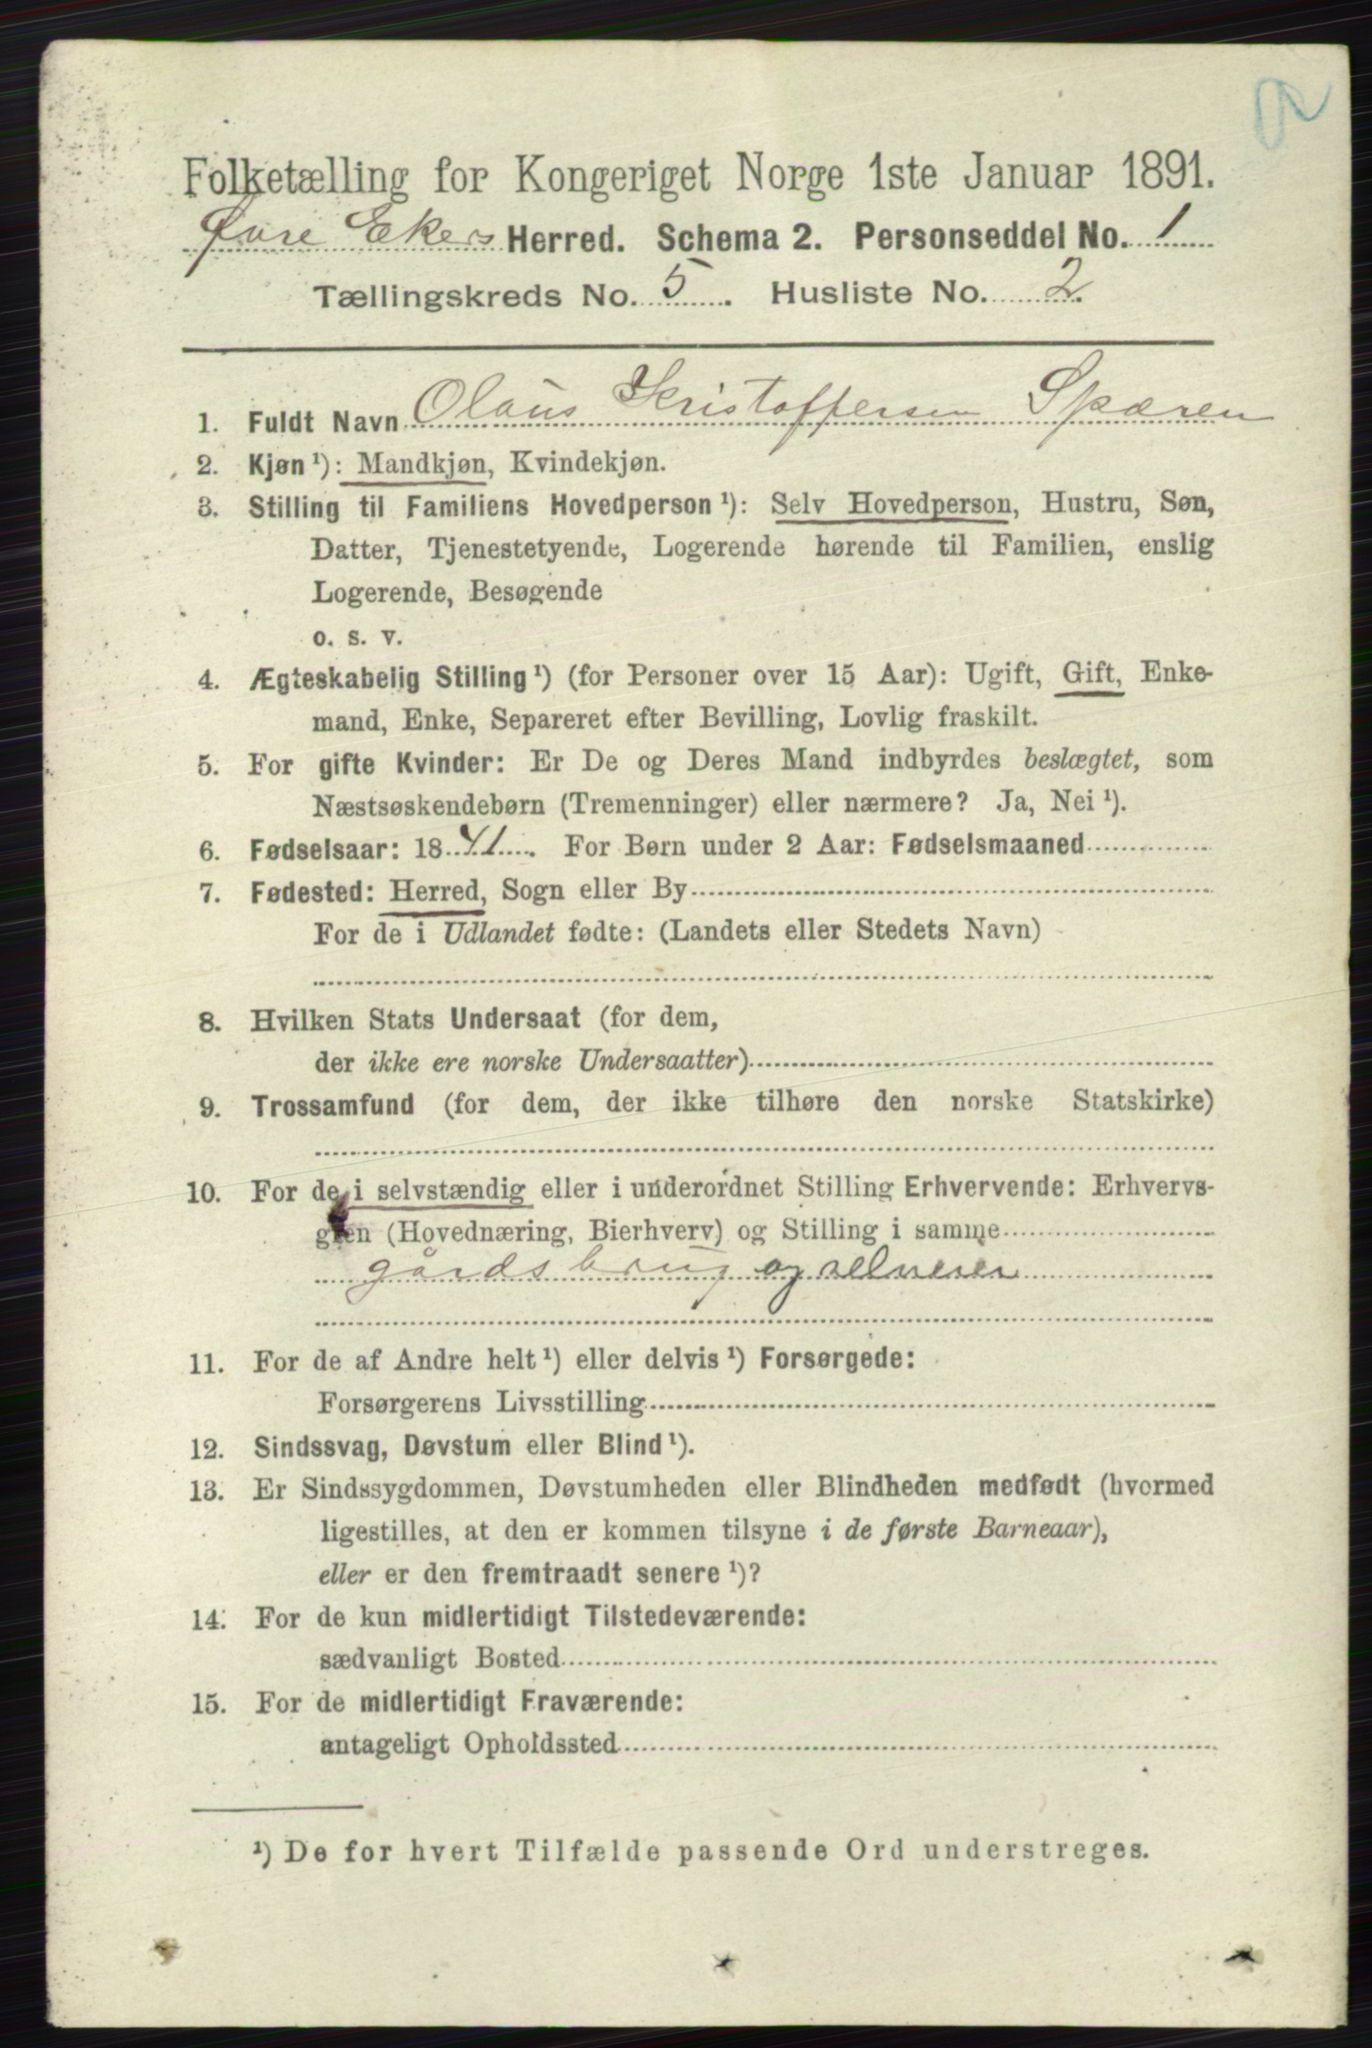 Folketælling for Kongeriget Norge 1ste Januar 1891.
Øvre Eker Herred. Schema 2. Personseddel No. 1
Tællingskreds No. 5. Husliste No. 2.
1. Fuldt Navn Olaus Kristoffersen Spæren
2. Kjøn ¹): Mandkjøn, Kvindekjøn.
3. Stilling til Familiens Hovedperson ¹): Selv Hovedperson, Hustru, Søn,
Datter, Tjenestetyende, Logerende hørende til Familien, enslig
Logerende, Besøgende
o. s. v.
4. Ægteskabelig Stilling ¹) (for Personer over 15 Aar): Ugift, Gift, Enke-
mand, Enke, Separeret efter Bevilling, Lovlig fraskilt.
5. For gifte Kvinder: Er De og Deres Mand indbyrdes beslægtet, som
Næstsøskendebørn (Tremenninger) eller nærmere? Ja, Nei ¹).
6. Fødselsaar: 1841. For Børn under 2 Aar: Fødselsmaaned
7. Fødested: Herred, Sogn eller By
For de i Udlandet fødte: (Landets eller Stedets Navn)
8. Hvilken Stats Undersaat (for dem,
der ikke ere norske Undersaatter)
9. Trossamfund (for dem, der ikke tilhøre den norske Statskirke)
10. For de i selvstændig eller i underordnet Stilling Erhvervende: Erhvervs-
gren (Hovednæring, Bierhverv) og Stilling i samme
gårdsbrug og selveier
11. For de af Andre helt ¹) eller delvis ¹) Forsørgede:
Forsørgerens Livsstilling
12. Sindssvag, Døvstum eller Blind ¹).
13. Er Sindssygdommen, Døvstumheden eller Blindheden medfødt (hvormed
ligestilles, at den er kommen tilsyne i de første Barneaar),
eller er den fremtraadt senere ¹)?
14. For de kun midlertidigt Tilstedeværende:
sædvanligt Bosted
15. For de midlertidigt Fraværende:
antageligt Opholdssted
¹) De for hvert Tilfælde passende Ord understreges.